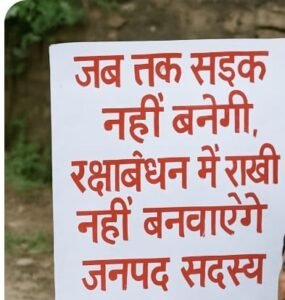 जब तक सड़क
नहीं बनेगी,
रक्षाबंधन में राखी
नहीं बनवाऐगे
जनपद सदस्य